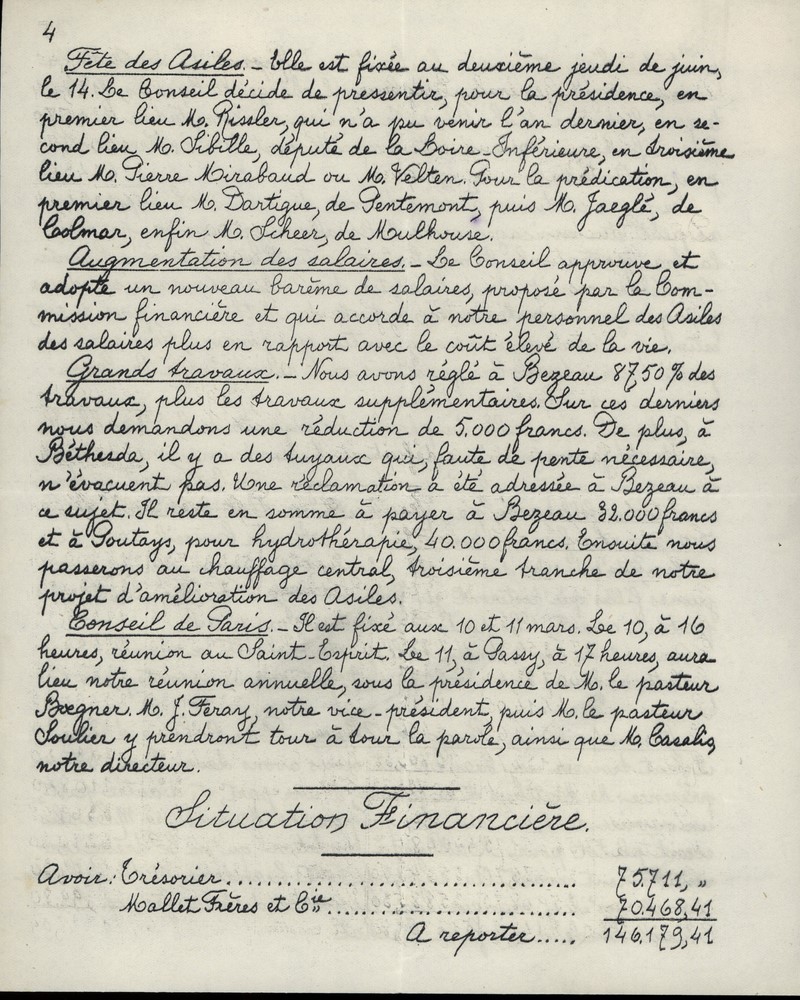 4
Fête des Asiles. - Elle est fixée au deuxième jeudi de juin,
le 14. Le Conseil décide de pressentir, pour la présidence, en
premier lieu M. Rissler, qui n'a pu venir l'an dernier, en se-
cond lieu M. Sibille, député de la Loire-Inférieure, en troisième
lieu M. Pierre Mirabaud ou M. Velten. Pour la prédication, en
premier lieu M. Dartigue, de Pentemont, puis M. Jaeglé, de
Colmar, enfin M. Scheer, de Mulhouse.
Augmentation des salaires. - Le Conseil approuve et
adopte un nouveau barème de salaires, proposé par la Com-
mission financière et qui accorde à notre personnel des Asiles
des salaires plus en rapport avec le coût élevé de la vie.
Grands travaux. - Nous avons réglé à Bezeau 87.50 % des
travaux, plus les travaux supplémentaires. Sur ces derniers
nous demandons une réduction de 5.000 francs. De plus, à
Béthesda, il y a des tuyaux qui, faute de pente nécessaire,
n'évacuent pas. Une réclamation a été adressée à Bezeau à
ce sujet. Il reste en somme à payer à Bezeau 32.000 francs
et à Goutays, pour hydrothérapie, 40.000 francs. Ensuite nous
passerons au chauffage central, troisième tranche de notre
projet d'amélioration des Asiles.
Conseil de Paris. - Il est fixé aux 10 et 11 mars. Le 10, à 16
heures, réunion au Saint-Esprit. Le 11, à Passy, à 17 heures, aura
lieu notre réunion annuelle, sous la présidence de M. le pasteur
Bœgner. M. J. Feray, notre vice-président, puis M. le pasteur
Soulier y prendront tour à tour la parole, ainsi que M. Casalis,
notre directeur.
Situation Financière.
Avoir: Trésorier........................................ 75.711, "
Mallet Frères et Cie............................ 70.468,41
A reporter..... 146.179,41